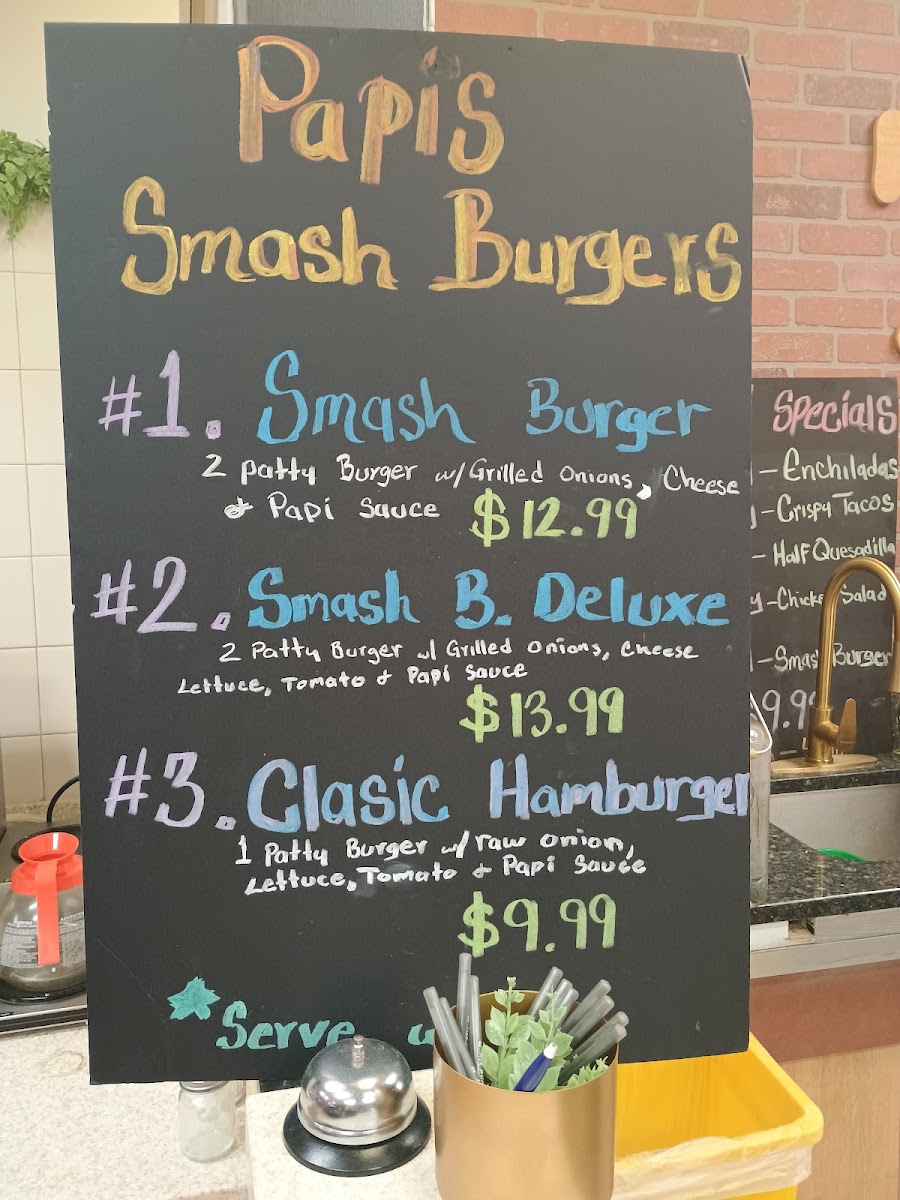 Papis
Smash Burgers
#1. Smash Burger
2 patty Burger w/ Grilled Onions, Cheese
& Papi Sauce $12.99
#2. Smash B. Deluxe
2 Patty Burger w/ Grilled Onions, Cheese
Lettuce, Tomato & Papi Sauce
$13.99
#3. Clasic Hamburger
1 Patty Burger w/ raw onion,
Lettuce, Tomato & Papi Sauce
$9.99
Serve
Specials
- Enchiladas
- Crispy Tacos
- Half Quesadilla
- Chicke Salad
- Smas Burger
9.9